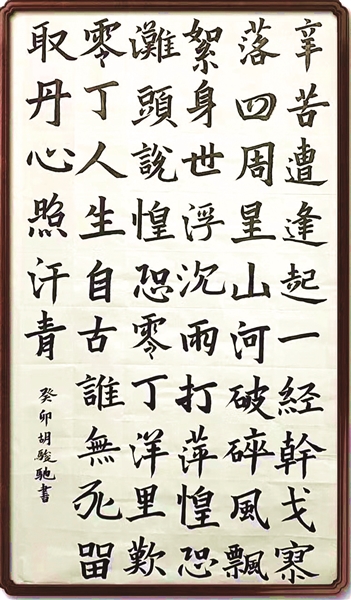 辛苦遭逢起一經幹戈寥
落四周星山河破碎風飄
絮身世浮沉雨打萍惶恐
灘頭說惶恐零丁洋里歎
零丁人生自古誰無死留
取丹心照汗青
癸卯胡駿馳書